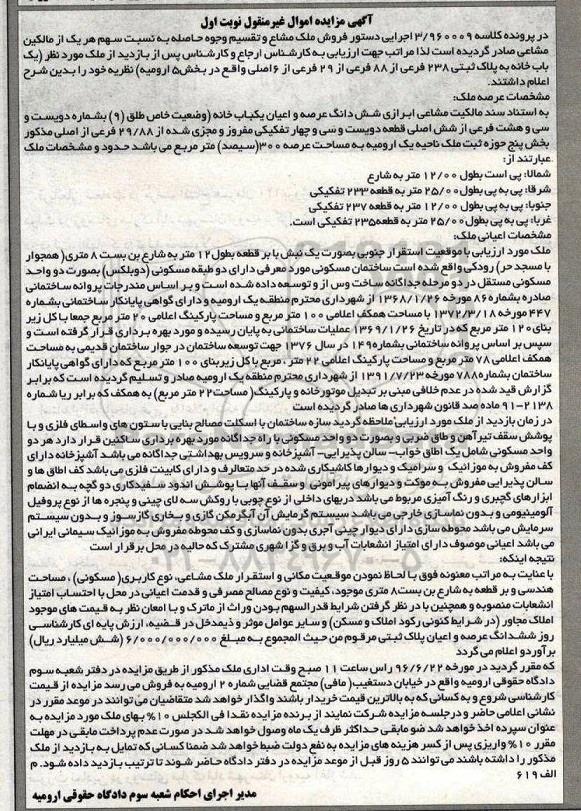 آگهی مزایده اموال غیرمنقول نوبت اول
در پرونده کلاسه ۳/۹۶۰۰۰۹ اجرایی دستور فروش ملک مشاع و تقسیم وجوه حاصله به نسبت سهم هر یک از مالکین
مشاعی صادر گردیده است لذا مراتب جهت ارزیابی به کارشناس ارجاع و کارشناس پس از بازدید از ملک مورد نظر (یک
باب خانه به پلاک ثبتی ۲۳۸ فرعی از ۸۸ فرعی از ۲۹ فرعی از ۶ اصلی واقع در بخش۵ ارومیه) نظریه خود را بدین شرح
اعلام داشتند.
مشخصات عرصه ملک:
به استناد سند مالکیت مشاعی ابرازی شش دانگ عرصه و اعیان یکباب خانه (وضعیت خاص طلق (۹) بشماره دویست و
سی و هشت فرعی از شش اصلی قطعه دویست و سی و چهار تفکیکی مفروز و مجزی شده از ۲۹/۸۸ فرعی از اصلی مذکور
بخش پنج حوزه ثبت ملک ناحیه یک ارومیه به مساحت عرصه ۳۰۰ (سیصد) متر مربع می باشد حدود و مشخصات ملک
عبارتند از:
شمالا: پی است بطول ۱۲/۰۰ متر به شارع
شرقا: پی به پی بطول ۲۵/۰۰ متر به قطعه ۲۳۳ تفکیکی
جنوبا: پی به پی بطول ۱۲/۰۰ متر به قطعه ۲۳۷ تفکیکی
غربا: پی به پی بطول ۲۵/۰۰ متر به قطعه۲۳۵ تفکیکی است.
مشخصات اعیانی ملک:
ملک مورد ارزیابی با موقعیت استقرار جنوبی بصورت یک نبش با بر قطعه بطول ۱۲ متر به شارع بن بست ۸ متری( همجوار
با مسجد حر) رودکی واقع شده است ساختمان مسکونی مورد معرفی دارای دو طبقه مسکونی (دوبلکس) بصورت دو واحد
مسکونی مستقل در دو مرحله جداگانه ساخت وس از و توسعه داده شده است و بر اساس مندرجات پروانه ساختمانی
صادره بشماره ۸۶ مورخه ۱۳۶۸/۱/۲۶ از شهرداری محترم منطقه یک ارومیه و دارای گواهی پایانکار ساختمانی بشماره
۴۴۷ مورخه ۱۳۷۲/۳/۱۸ با مساحت همکف اعلامی ۱۰۰ متر مربع و مساحت پارکینگ اعلامی ۲۰ متر مربع جمعا با کل زیر
بنای ۱۲۰ متر مربع که در تاریخ ۱۳۶۹/۱/۲۶ عملیات ساختمانی به پایان رسیده و مورد بهره برداری قرار گرفته است و
سپس بر اساس پروانه ساختمانی بشماره۱۴۹ در سال ۱۳۷۶ جهت توسعه ساختمان در جوار ساختمان قدیمی به مساحت
همکف اعلامی ۷۸ متر مربع و مساحت پارکینگ اعلامی ۲۲ متر . مربع با کل زیربنای ۱۰۰ متر مربع که دارای گواهی پایانکار
ساختمان بشماره۷۸۸ مورخه ۱۳۹۱/۷/۲۳ از شهرداری محترم منطقه یک ارومیه صادر و تسلیم گردیده است که برابر
گزارش قید شده در عدم خلافی مبنی بر تبدیل موتورخانه و پارکینگ( مساحت۲۲ متر مربع) به همکف که برابر رپا شماره
۹۱-۲۱۳۸ ماده صد قانون شهرداری ها صادر گردیده است
در زمان بازدید از ملک مورد ارزیابی ملاحظه گردید سازه ساختمان با اسکلت مصالح بنایی با ستون های واسطای فلزی و با
پوشش سقف تیرآهن و طاق ضربی و بصورت دو واحد مسکونی با راه جداگانه مورد بهره برداری ساکنین قرار دارد هر دو
واحد مسکونی شامل یک اطاق خواب- سالن پذیرایی- آشپزخانه و سرویس بهداشتی جداگانه می باشد آشپزخانه دارای
کف مفروش به موزائیک و سرامیک و دیوارها کاشیکاری شده در حد متعارف و دارای کابینت فلزی می باشد کف اطاق ها و
سالن پذیرایی مفروش به موکت و دیوارهای پیرامونی و سقف آنها با پوشش اندود سفیدکاری دو گچه به انضمام
ابزارهای گچبری و رنگ آمیزی مربوط می باشد دربهای داخلی از نوع چوبی با روکش سه لای چینی و پنجره ها از نوع پروفیل
آلومینیومی و بدون نماسازی خارجی می باشد سیستم گرمایش آن آبگرمکن گازی و بخاری گازسوز و بدون سیستم
سرمایش می باشد محوطه سازی دارای دیوار چینی آجری بدون نماسازی و کف محوطه مفروش به موزائیک سیمانی ایرانی
می باشد اعیانی موصوف دارای امتیاز انشعابات آب و برق و گاز شهری مشترک که حالیه در محل برقرار است
نتیجه اینکه:
با عنایت به مراتب معنونه فوق با لحاظ نمودن موقعیت مکانی و استقرار ملک مشاعی، نوع کاربری( مسکونی) ، مساحت
هندسی و بر قطعه به شارع بن بست۸ متری موجود، کیفیت و نوع مصالح مصرفی و قدمت اعیانی در محل با احتساب امتیاز
انشعابات منصوبه و همچنین با در نظر گرفتن شرایط قدرالسهم بودن وراث از ماترک و با امعان نظر به قیمت های موجود
املاک مجاور (در شرایط کنونی رکود املاک و مسکن) و سایر عوامل موثر و ذیمدخل در قضیه، ارزش پایه ای کارشناسی
روز ششدانگ عرصه و اعیان پلاک ثبتی مرقوم من حیث المجموع به مبلغ ۶/۰۰۰/۰۰۰/۰۰۰ (شش میلیارد ریال)
برآورد و اعلام می گردد
که مقرر گردید در مورخه ۹۶/۶/۲۲ راس ساعت ۱۱ صبح وقت اداری ملک مذکور از طریق مزایده در دفتر شعبه سوم
دادگاه حقوقی ارومیه واقع در خیابان دستغیب( مافی) مجتمع قضایی شماره ۲ ارومیه به فروش می رسد مزایده از قیمت
کارشناسی شروع و به کسانی که به بالاترین قیمت خریدار باشند واگذار خواهد شد متقاضیان می توانند در موعد مقرر در
نشانی اعلامی حاضر و در جلسه مزایده شرکت نمایند از برنده مزایده نقدا فی الکجلس ۱۰% بهای ملک مورد مزایده به
عنوان سپرده اخذ خواهد شد ضو مابقی حداکثر ظرف یک ماه وصول خواهد شد در صورت عدم پرداخت مابقی در مهلت
مقرر ۱۰% واریزی پس از کسر هزینه های مزایده به نفع دولت ضبط خواهد شد ضمنا کسانی که تمایل به بازدید از ملک
مذکور را داشته باشند می توانند ۵ روز قبل از موعد مزایده در دفتر دادگاه حاضر شوند تا ترتیب بازدید داده شود. م
الف ۶۱۹
مدیر اجرای احکام شعبه سوم دادگاه حقوقی ارومیه